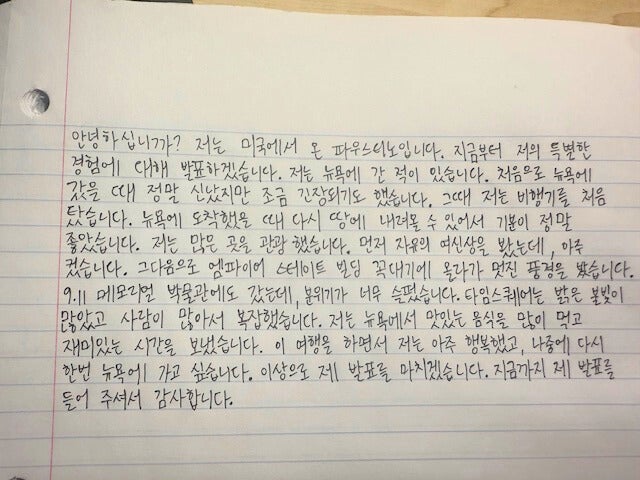 안녕하십니까? 저는 미국에서 온 파우스티노입니다. 지금부터 저의 특별한
경험에 대해 발표하겠습니다. 저는 뉴욕에 간 적이 있습니다. 처음으로 뉴욕에
갔을 때 정말 신났지만 조금 긴장되기도 했습니다. 그때 저는 비행기를 처음
탔습니다. 뉴욕에 도착했을 때 다시 땅에 내려올 수 있어서 기분이 정말
좋았습니다. 저는 많은 곳을 관광했습니다. 먼저 자유의 여신상을 봤는데, 아주
컸습니다. 그다음으로 엠파이어 스테이트 빌딩 꼭대기에 올라가 멋진 풍경을 봤습니다.
9.11 메모리얼 박물관에도 갔는데, 분위기가 너무 슬펐습니다. 타임스퀘어는 밝은 불빛이
많았고 사람이 많아서 복잡했습니다. 저는 뉴욕에서 맛있는 음식을 많이 먹고
재미있는 시간을 보냈습니다. 이 여행을 하면서 저는 아주 행복했고, 나중에 다시
한번 뉴욕에 가고 싶습니다. 이상으로 제 발표를 마치겠습니다. 지금까지 제 발표를
들어 주셔서 감사합니다.